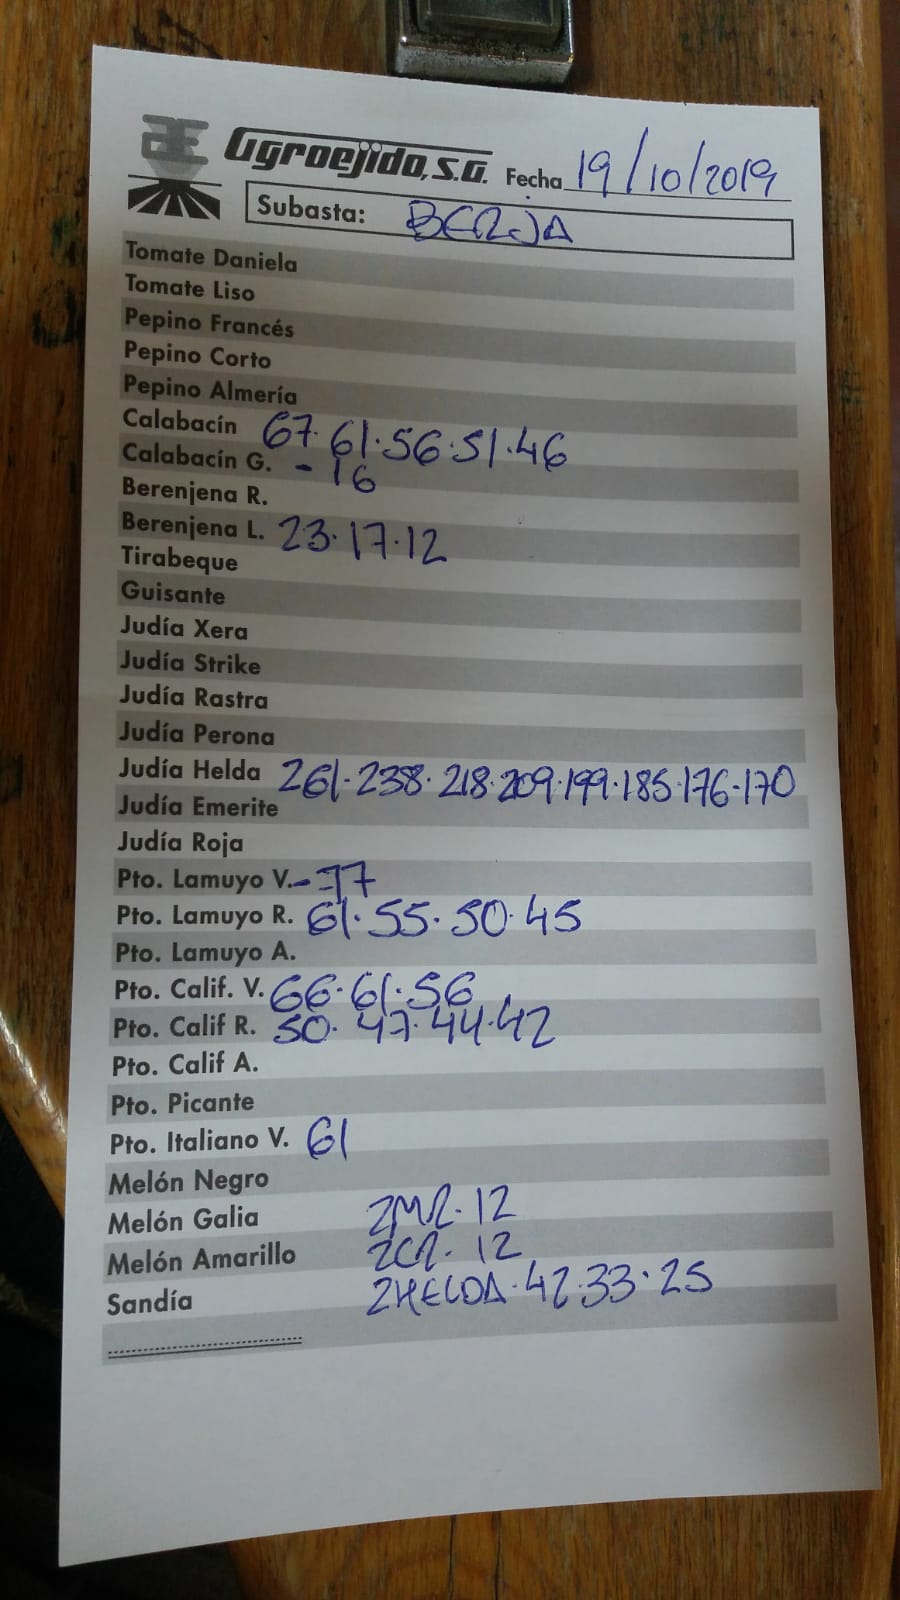 Agroejido, S.A. Fecha 19/10/2019
Subasta: BERJA
Tomate Daniela
Tomate Liso
Pepino Francés
Pepino Corto
Pepino Almería
Calabacín 67.61.56.51.46
Calabacín G. - 16
Berenjena R.
Berenjena L. 23.17.12
Tirabeque
Guisante
Judía Xera
Judía Strike
Judía Rastra
Judía Perona
Judía Helda 261.238.218.209.199.185.176.170
Judía Emerite
Judía Roja
Pto. Lamuyo V. -37
Pto. Lamuyo R. 61.55.50.45
Pto. Lamuyo A.
Pto. Calif. V. 66.61.56
Pto. Calif R. 50.47.44.42
Pto. Calif A.
Pto. Picante
Pto. Italiano V. 61
Melón Negro
Melón Galia 2MR. 12
Melón Amarillo 2CR. 12
Sandía 2HELDA.42.33.25